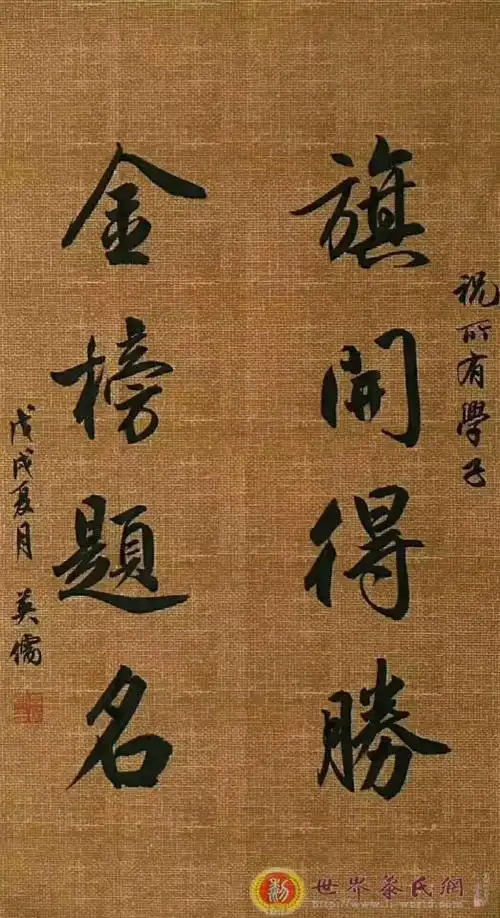 祝所有學子
旗開得勝
金榜題名
戊戌夏月 英儒
世界蔡氏網